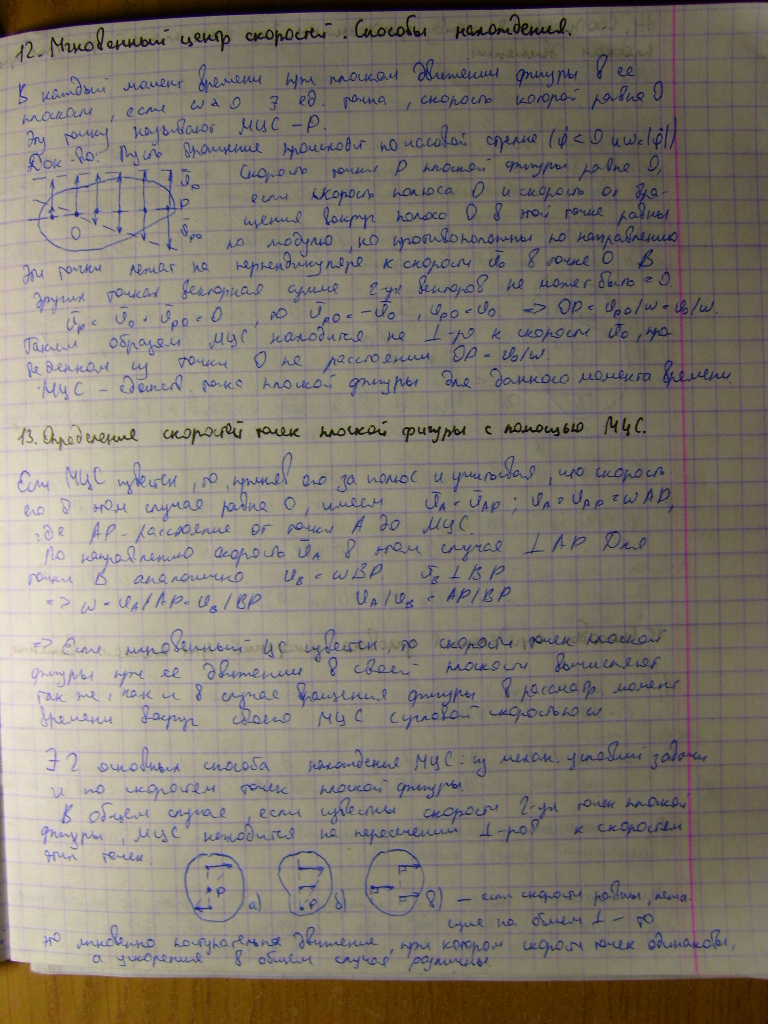 12. Мгновенный центр скоростей. Способы нахождения.
В каждый момент времени при плоском движении фигуры в её
плоскости, если ω ≠ 0 ∃ ед. точка, скорость которой равна 0
Эту точку называют МЦС – P.
Док-во: Пусть вращение происходит по часовой стрелке (φ̇ < 0 и ω = |φ̇|)
Скорость точки P плоской фигуры равна 0,
если скорость полюса O и скорость от вра-
щения вокруг полюса O в этой точке равны
по модулю, но противоположны по направлению
Эти точки лежат на перпендикуляре к скорости v̄₀ в точке O В
других точках векторная сумма 2-ух векторов не может быть = 0.
v̄p = v̄₀ + v̄po = 0, то v̄po = –v̄₀, vpo = v₀. => OP = vpo/ω = v₀/ω.
Таким образом МЦС находится на ⊥-ре к скорости v̄₀, про
веденном из точки O на расстоянии OP = v₀/ω.
МЦС – единств. точка плоской фигуры для данного момента времени.
v̄₀
P
v̄po
O
13. Определение скоростей точек плоской фигуры с помощью МЦС.
Если МЦС известен, то, приняв его за полюс и учитывая, что скорость
его в этом случае равна 0, имеем v̄A = v̄AP; vA = vAP = ωAP,
где AP – расстояние от точки A до МЦС.
По направлению скорость v̄A в этом случае ⊥ AP Для
точки B аналогично vB = ωBP v̄B ⊥ BP
=> ω = vA/AP = vB/BP vA/vB = AP/BP
=> Если мгновенный ЦС известен, то скорости точек плоской
фигуры при её движении в своей плоскости вычисляют
так же, как и в случае вращения фигуры в рассматр. момент
времени вокруг своего МЦС с угловой скоростью ω
∃ 2 основных способа нахождения МЦС: из механ. условий задачи
и по скоростям точек плоской фигуры.
В общем случае, если известны скорости 2-ух точек плоской
фигуры, МЦС находится на пересечении ⊥-ров к скоростям
этих точек.
P а) P б) в) – если скорости равны, лежа-
щие на общем ⊥ – то
это мгновенно поступательное движение, при котором скорости точек одинаковы,
а ускорения в общем случае различны.